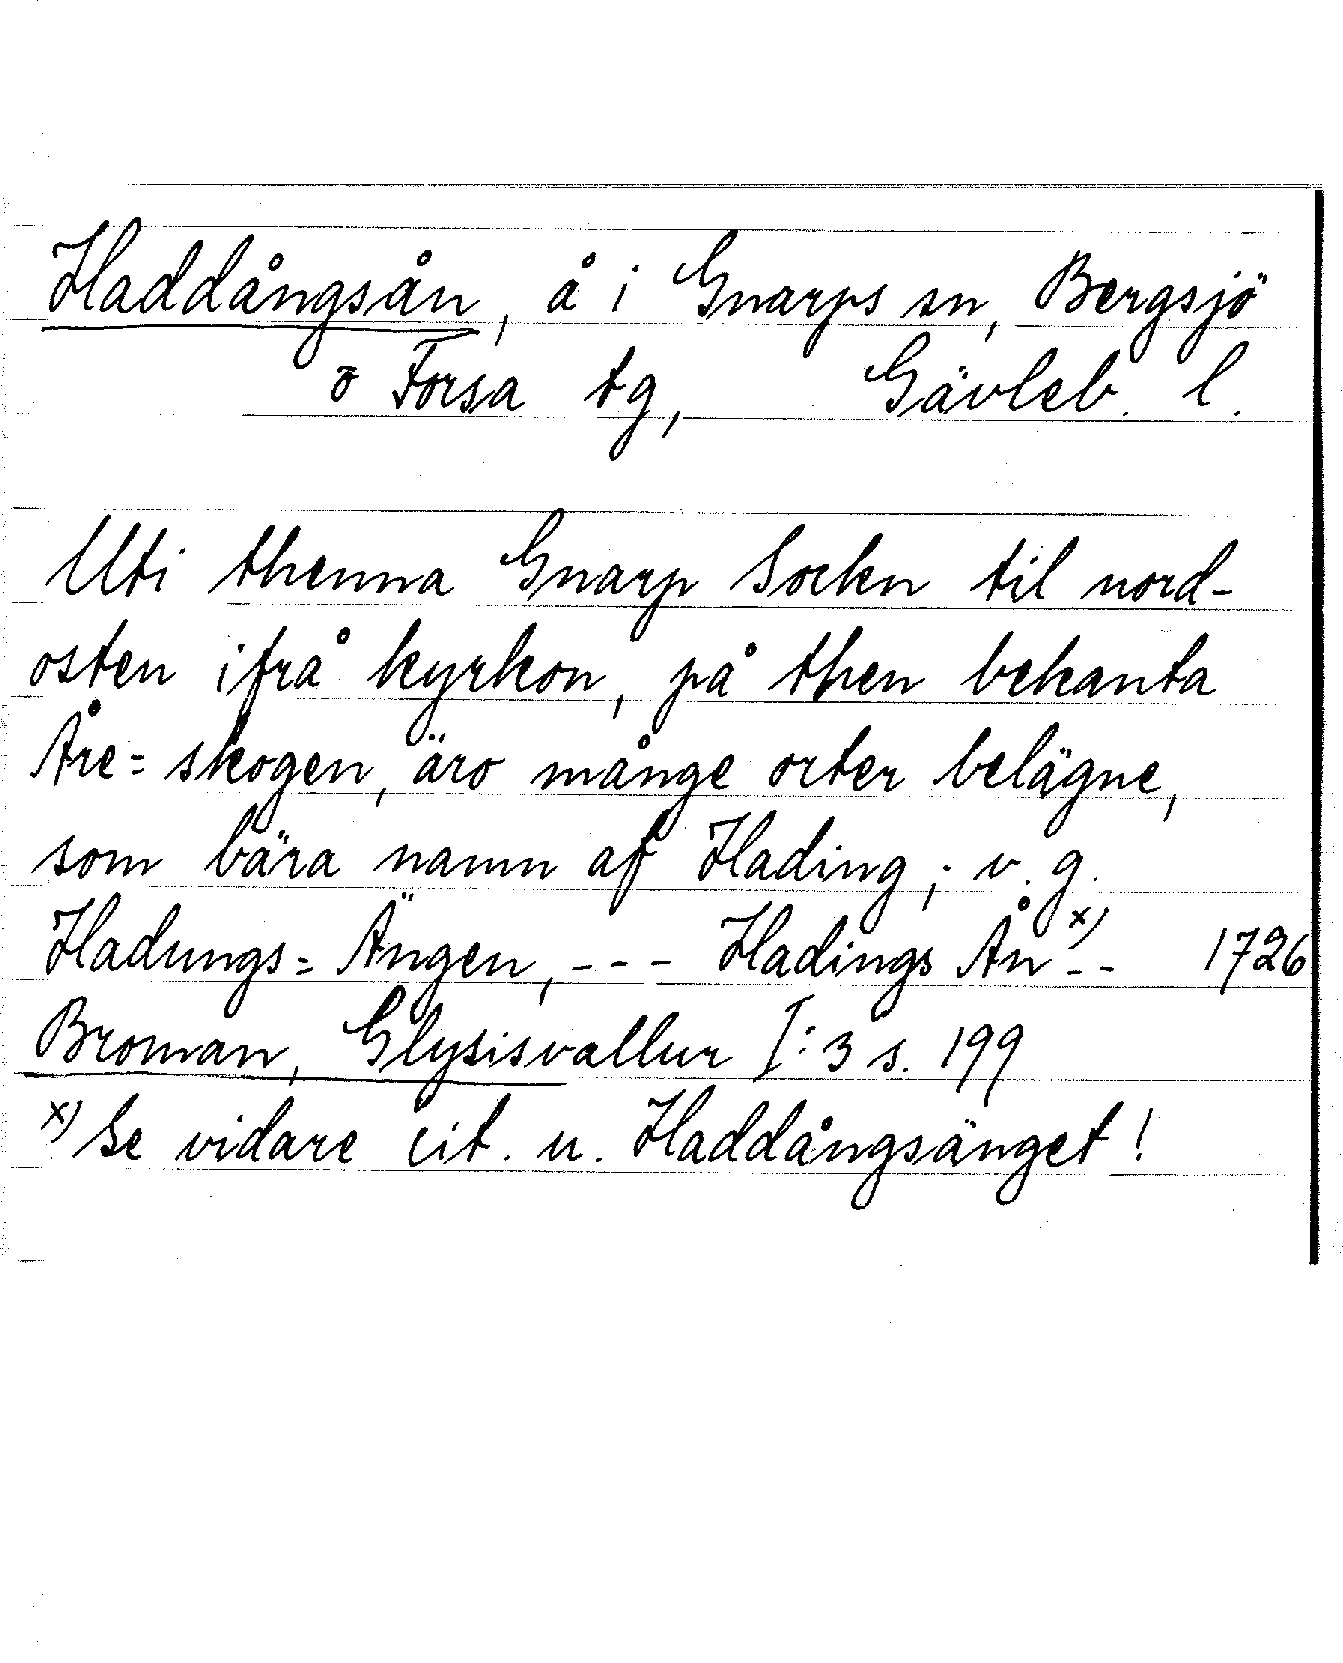 Haddångsån, å i Gnarps sn, Bergsjö
o Forsa tg, Gävleb. l.
Uti thenna Gnarp Sockn til nord-
osten ifrå kyrkon, på then bekanta
Åre= skogen, äro månge orter belägne,
som bära namn af Hading,; v. g.
Hadungs= Ängen, - - - Hadings Ån x) - - 1726
Broman, Glysisvallur I:3 s. 199
x) Se vidare cit. u. Haddångsänget!